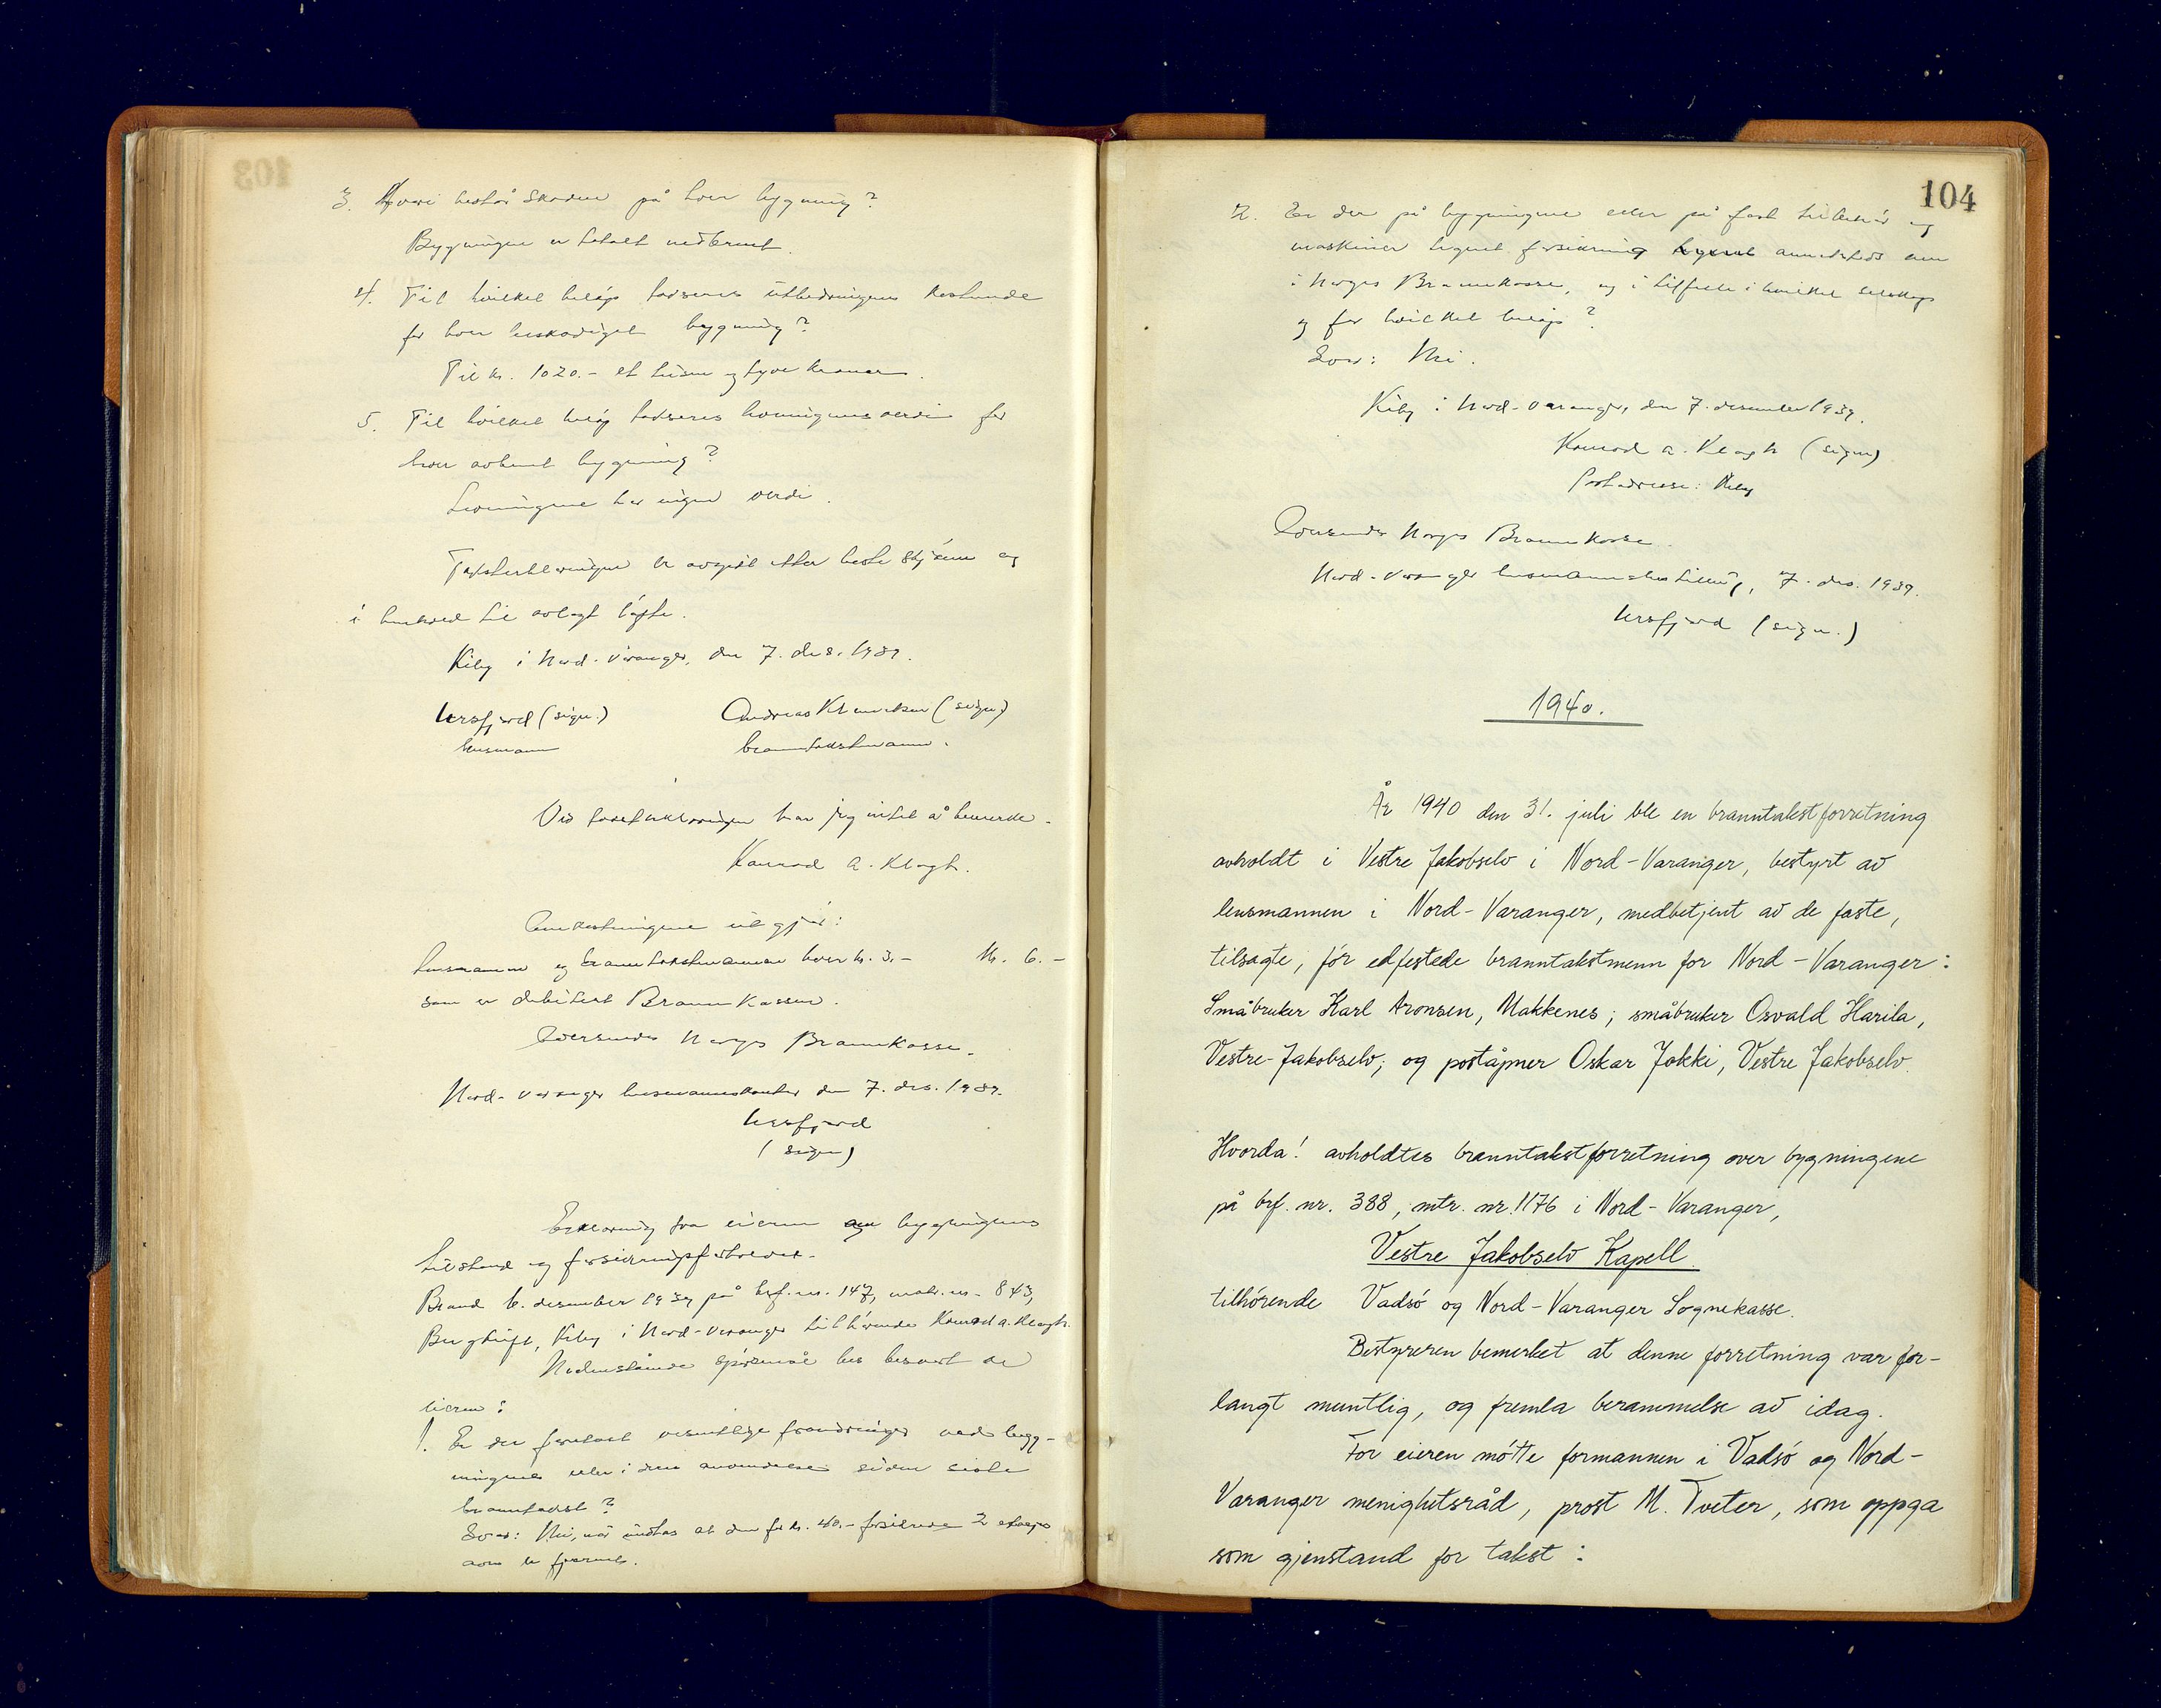 3. Hvori består skaden på hver bygning?
Bygningen er totalt nedbrent.
4. Til hvilket beløp takseres utbedringens kostende
for hver beskadiget bygning?
Til kr. 1020.- et tusen og tyve kroner.
5. Til hvilket beløp takseres levningenes verdi for
hver avbrent bygning?
Levningene har ingen verdi.
Taksterklæringen er avgitt etter beste skjønn og
i henhold til avlagt løfte.
Kiby i Nord-Varanger, den 7. des. 1939.
Ursfjord (sign.) Andreas Klemetsen (sign)
lensmann branntakstmann.
Ved taksterklæringen har jeg intet å bemerke.
Konrad A. Klogh.
Omkostningene utgjør:
Lensmann og branntakstmannen hver kr. 3.- Kr. 6.-
som er debitert Brannkassen.
Oversendes Norges Brannkasse.
Nord-Varanger lensmannskontor den 7. des. 1939.
Ursfjord
(sign)
Erklæring fra eieren om bygningens
tilstand og forsikringsforholdet.
Brand 6. desember 1939 på brf. nr. 147, matr. nr. 843,
Bergtuft, Kiby i Nord-Varanger tilhørende Konrad A. Klogh.
Nedenstående spørsmål bes besvart av
eieren:
1. Er der foretatt vesentlige forandringer ved byg-
ningene eller i dens anvendelse siden siste
branntakst?
Svar: Nei, når undtas at den for kr. 40.- forsikrede 2 etasjes
ovn er fjernet.
104
2. Er der på bygningene eller på fast tilbehør og
maskiner tegnet forsikring annetsteds enn
i Norges Brannkasse, og i tilfelle i hvilket selskap
og for hvilket beløp?
Svar: Nei.
Kiby i Nord-Varanger, den 7. desember 1939.
Konrad A. Klogh (sign)
Postadresse: Kiby
Oversendes Norges Brannkasse.
Nord-Varanger lensmannsbestilling, 7. des. 1939.
Ursfjord (sign.)
1940.
År 1940 den 31. juli ble en branntakstforretning
avholdt i Vestre Jakobselv i Nord-Varanger, bestyrt av
lensmannen i Nord-Varanger, medbetjent av de faste,
tilsagte, før edfestede branntakstmenn for Nord-Varanger:
Småbruker Karl Aronsen, Makkenes; småbruker Osvald Harila,
Vestre-Jakobselv; og poståpner Oskar Jokki, Vestre Jakobselv.
Hvorda! avholdtes branntakstforretning over bygningene
på brf. nr. 388, mtr. nr. 1176 i Nord-Varanger,
Vestre Jakobselv Kapell
tilhørende Vadsø og Nord-Varanger Sognekasse.
Bestyreren bemerket at denne forretning var for-
langt muntlig, og fremla berammelse av idag.
For eieren møtte formannen i Vadsø og Nord-
Varanger menighetsråd, prost M. Tveter, som oppga
som gjenstand for takst: